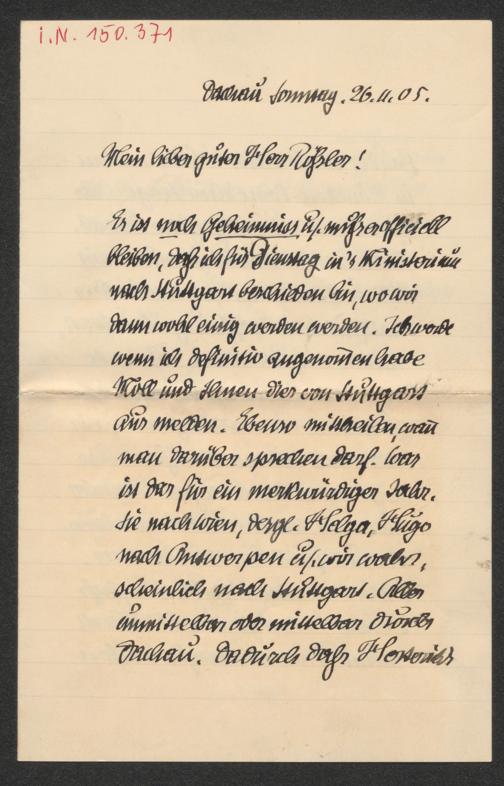 I.N. 150.371
Dachau Sonntag. 26.11.05.
Mein lieber guter Herr Rößler!
Es ist noch Geheimniss u. muß es officiell
bleiben, daß ich für Dienstag in's Ministerium
nach Stuttgart beschieden bin, wo wir
dann wohl einig werden werden. Ich werde
wenn ich definitiv angenommen habe
Moll und Ihnen dies von Stuttgart
aus melden. Ebenso mittheilen, wann
man darüber sprechen darf. Was
ist das für ein merkwürdiges Jahr.
Sie nach Wien, desgl. Helga, Hugo
nach Antwerpen u. wir wahr,
scheinlich nach Stuttgart. Alles
unmittelbar oder mittelbar durch
Dachau. Dadurch daß